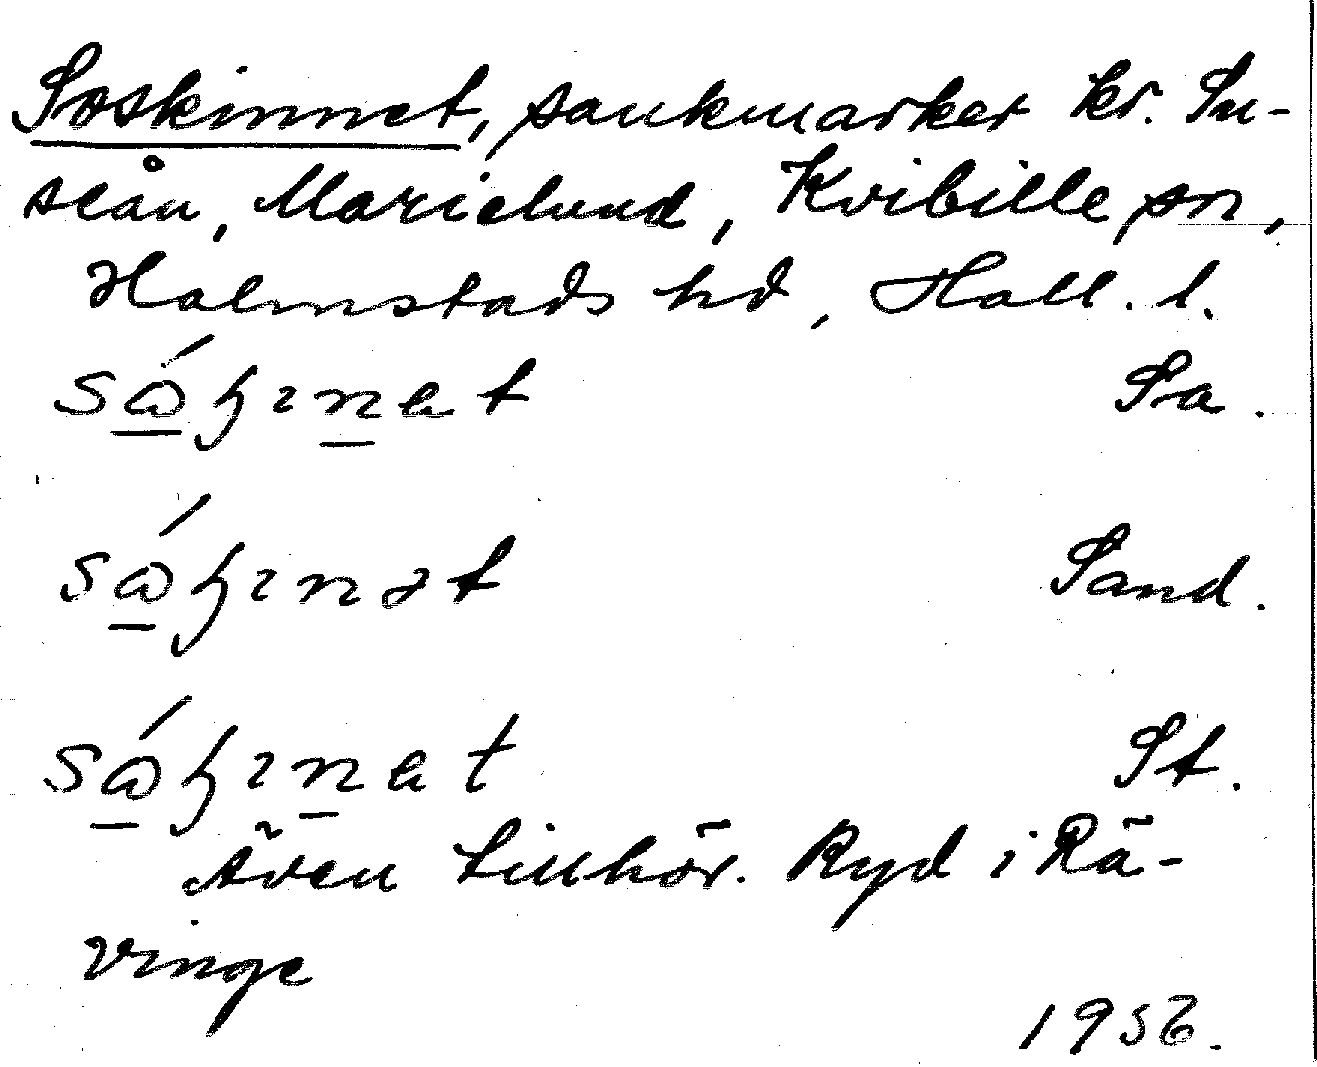 Soskinnet, sankmarker kr. Su-
seån, Marielund, Kvibille sn,
Halmstads hd, Hall. l.
Sa.
Sand.
St.
Även tillhör. Ryd i Rä-
vinge
1956.